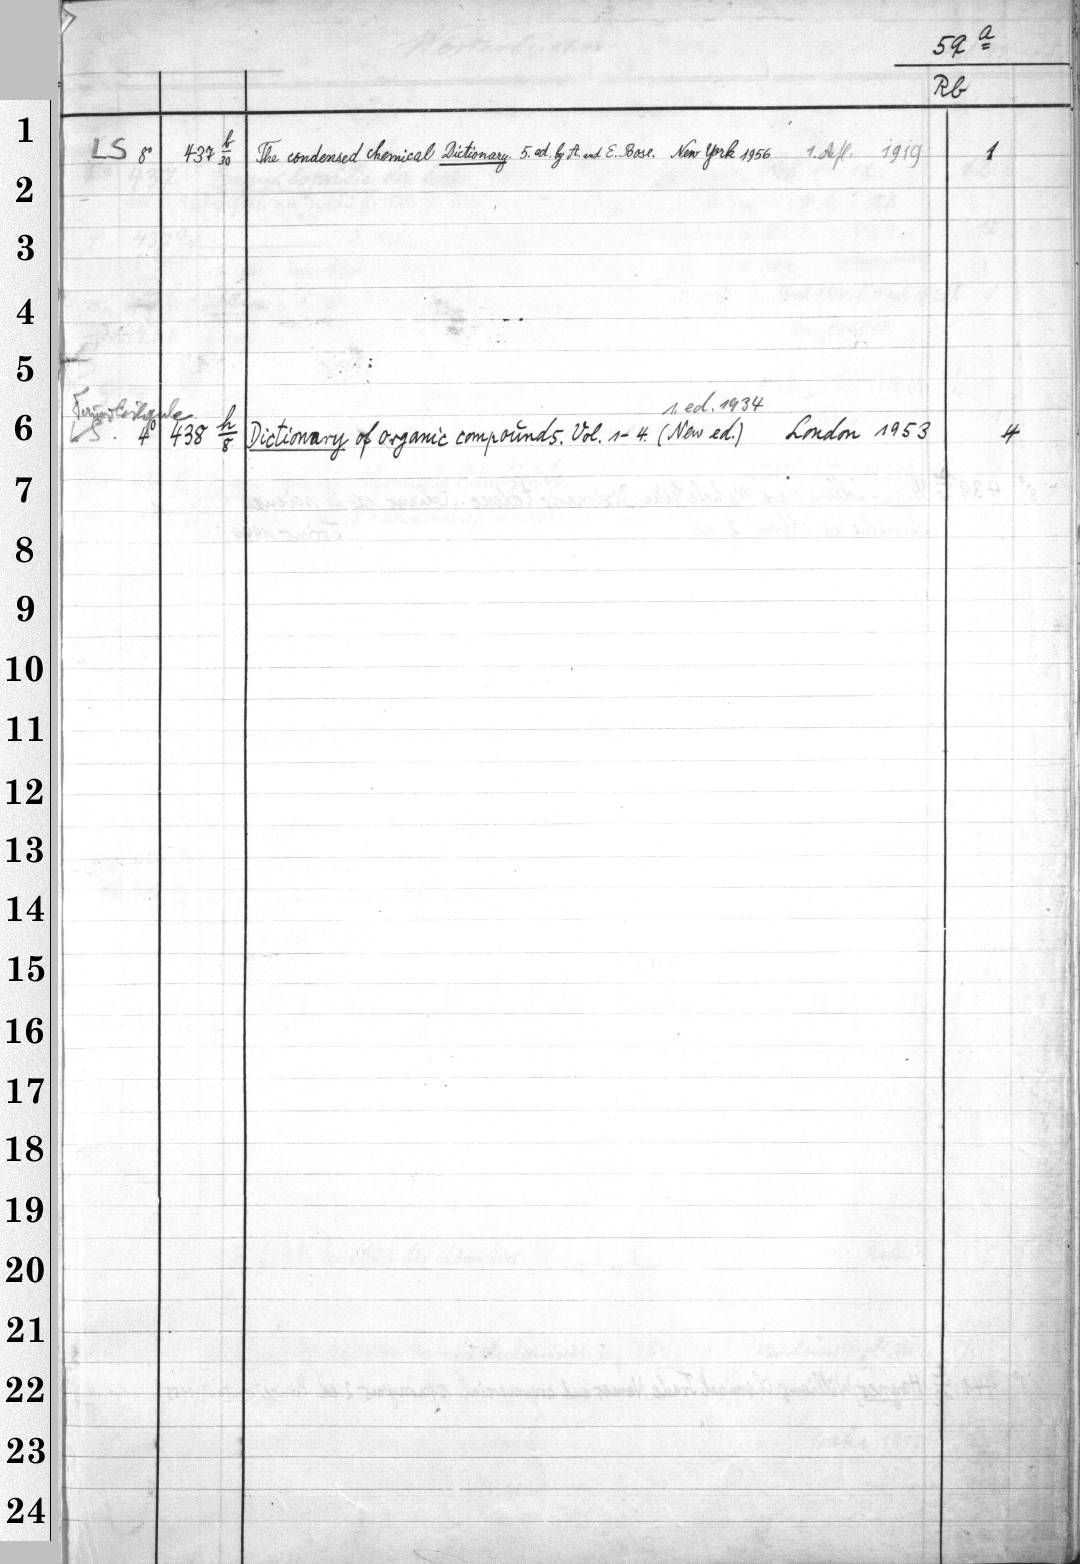 59 a
Rb
1
LS 8° 437 b/30 The condensed chemical Dictionary. 5. ed. by A. and E. Rose. New York 1956 1. Aufl. 1919 1
2
3
4
5
1. ed. 1934
6
LS. 4° 438 h/8 Dictionary of organic compounds. Vol. 1-4. (New ed.) London 1953 4
7
8
9
10
11
12
13
14
15
16
17
18
19
20
21
22
23
24